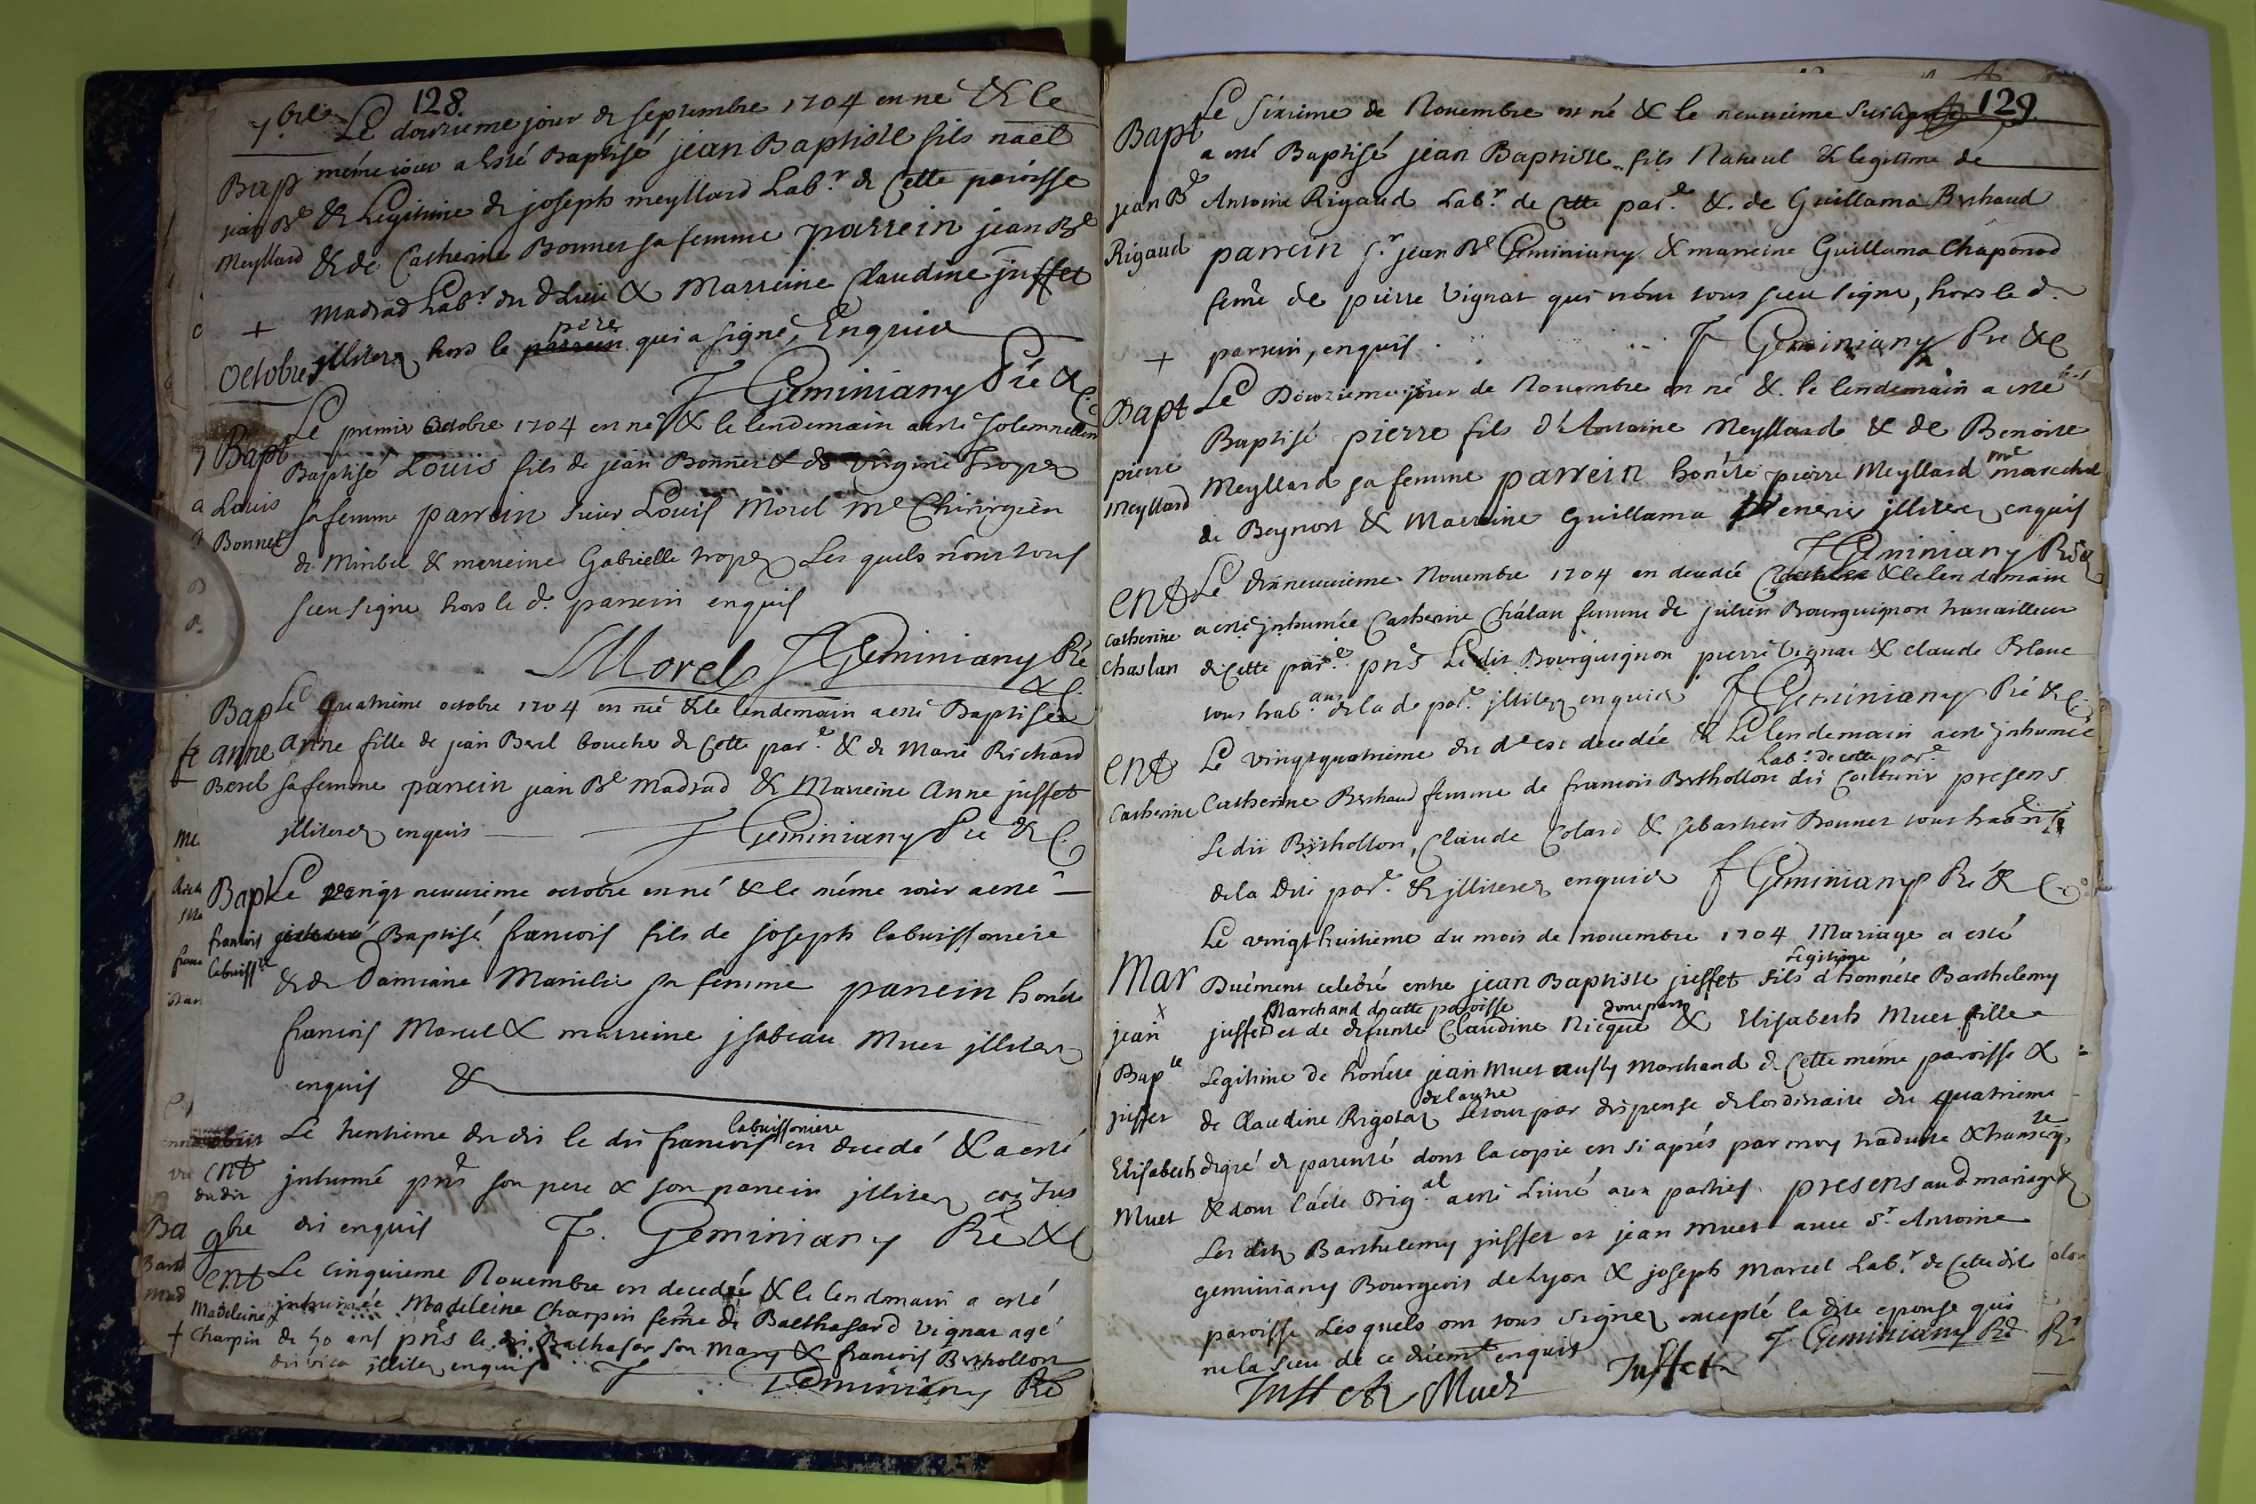 128.
7.bre Le douzieme jour de septembre 1704 est né & le
Bap même jour a esté Baptisé jean Baptiste fils naël
jean Bte & Legitime de joseph meyllard Lab.r de Cette paroisse
Meyllard & de Catherine Bonnet sa femme parrein jean Bte
madrad Lab.r du d Lieu & Marreine Claudine juffet
+ illiterez hors le parrein père qui a signé, Enquis
Octobre
F Geminiany Pré & C.
Bapt Le premier Octobre 1704 est né & le lendemain a esté solemnellem
Louis Baptisé Louis fils de jean Bonnet & de virginie Troyez
Bonnet sa femme parrein sieur Louis Morel me Chirurgien
de Miribel & marreine Gabrielle troyez Lesquels n'ont tous
sceu signer hors le d. parrein enquis
LMorel F Geminiany Pré
& C.
Bap Le quatrieme octobre 1704 est née & le lendemain a esté Baptisée
anne anne fille de jean Berel boucher de Cette par.e & de Marie Richard
Berel sa femme parrein jean Bte madrad & Marreine Anne juffet
illiterez enquis F Geminiany Pré & C.
Bapt Le vingt neuvieme octobre est né & le même jour a esté
francois Baptisé francois fils de joseph labuissonniere
labuissre & de Damiane Manilie sa femme parrein honéte
francois Marcel & marreine jsabeau Muet illiterez
enquis &
Le trentieme du dit le dit francois labuissoniere est decedé & a esté
ent inhumé pnt son pere & son parrein illiterez
du dit
9bre dit enquis F. Geminiany Pré & C
ent Le cinquieme Novembre est decedée & le lendemain a esté
Madeleine inhumée Madeleine Charpin feme de Balthasard vignat agé
+ Charpin de 50 ans pnts le dit Balthasar son Mary & francois Berthollon
illiterez enquis F Geminiany Pré
129
Bapt Le sixieme de Novembre est né & le neuvieme
a esté Baptisé jean Baptiste fils Naturel & legitime de
jean Bte Antoine Rigaud Lab.r de Cette par.e & de Guillama Berthaud
Rigaud parrein s.r jean Bte Geminiany & marreine Guillama Chaponod
feme de pierre vignat qui n'ont tous sceu signer, hors le d.
+ parrein, enquis F Geminiany Pré & C
Bapt Le Douzieme jour de Novembre est né & le lendemain a esté
Baptisé pierre fils d'Antoine Meyllard & de Benoite
pierre Meyllard sa femme parrein honéte pierre Meyllard me marechal
Meyllard de Beynost & Marreine Guillama illiterez enquis
F Geminiany Pré &
ent Le dixneuvieme Novembre 1704 est decedée & le lendemain
Catherine a esté inhumée Catherine Chálan femme de julien Bourguignon travailleur
Chaslan de Cette par.e pnts Le dit Bourguignon pierre vignat & claude Blanc
tous hab.ans de la de par.e illiterez enquis F Geminiany Pré & C.
ent Le vingtquatrieme du dt est decedée & Le lendemain a esté inhumée
Catherine Catherine Berthaud femme de francois Berthollon dit Couturier Lab.r de cette par.e presens
Le dit Berthollon, Claude Colard & sebastien Bonnet tous habitants
de la dite par.e & illiterez enquis F Geminiany Pré & C.
Le vingt huitieme du mois de novembre 1704 Mariage a esté
Mar Duëment celebré entre jean Baptiste juffet fils Legitime d'honnéte Barthelemy
jean juffet Marchand de cette paroisse et de defunte Claudine Nicque d'une part & Elisabeth Muet fille
Bapte Legitime de honéte jean Muet aussy Marchand de Cette même paroisse &
juffet de Claudine Rigotaz de l'autre Le tout par dispense de l'ordinaire du quatrieme
Elisabeth degré de parenté dont la copie est si aprés par moy traduite & transcrite
Muet & dont l'acte Orig.al a esté Livré aux parties. presens au d mariage
Les ditz Barthelemy juffet et jean Muet avec S.r Antoine
geminiany Bourgeois de Lyon & joseph Marcel Lab.r de Cette dite
paroisse Lesquels ont tous signez excepté la dite epouse qui
ne la sceu de ce düemt enquis F Geminiany Pré
Juffet Muet Juffet